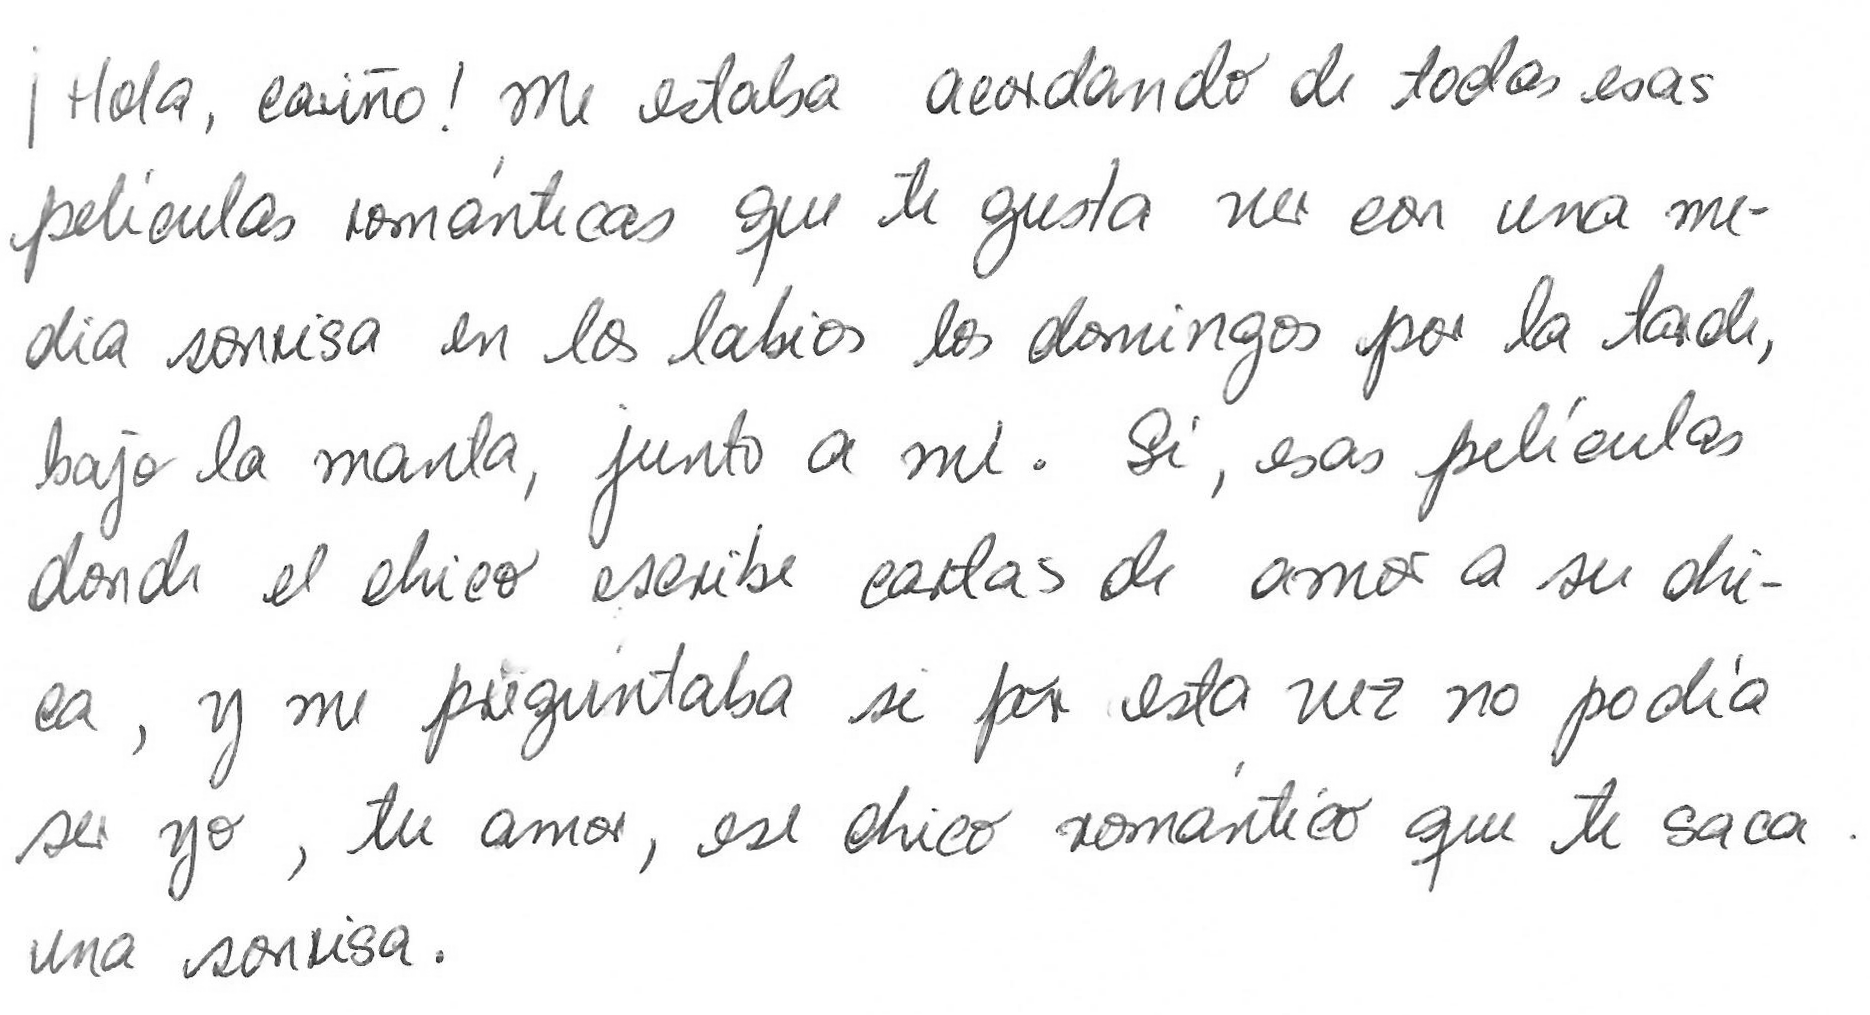 ¡Hola, cariño! Me estaba acordando de todas esas
películas románticas que te gusta ver con una me-
dia sonrisa en los labios los domingos por la tarde,
bajo la manta, junto a mí. Sí, esas películas
donde el chico escribe cartas de amor a su chi-
ca, y me preguntaba si por esta vez no podía
ser yo, tu amor, ese chico romántico que te saca
una sonrisa.